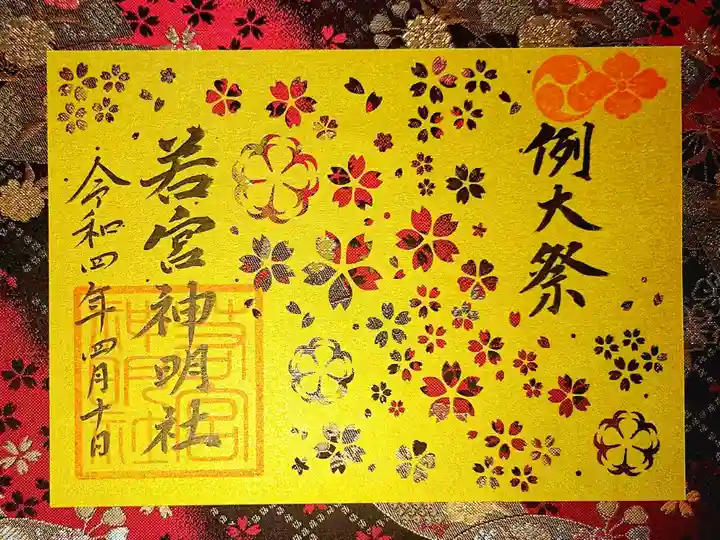 例大祭
若宮神明社
令和四年四月十日
若宮
神明社